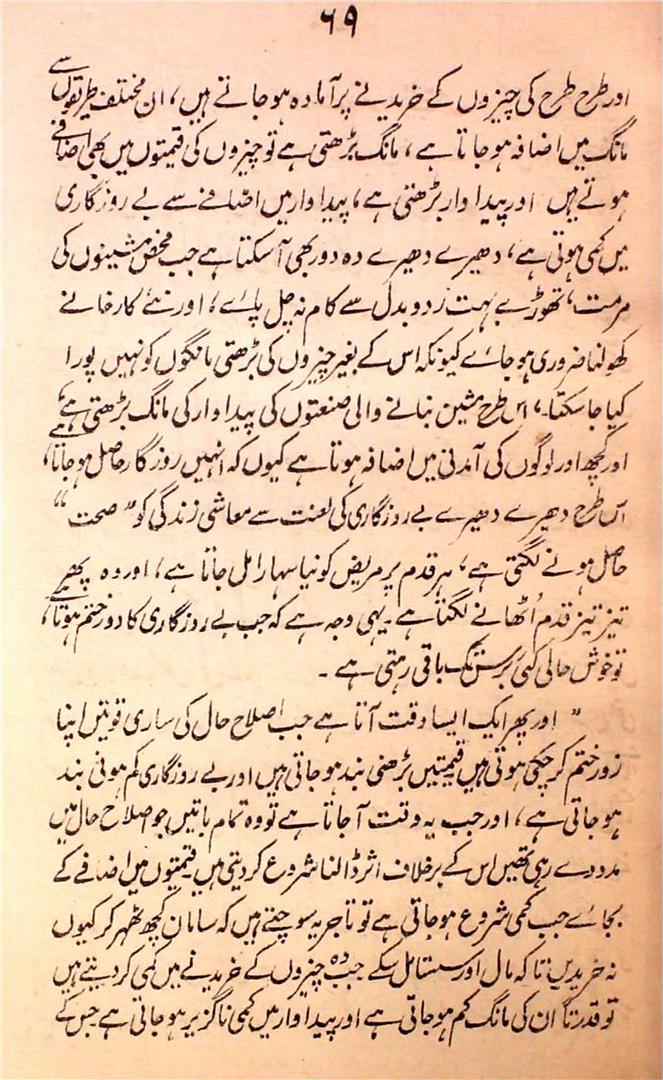 ۶۹
اور طرح طرح کی چیزوں کے خریدنے پر آمادہ ہو جاتے ہیں، ان مختلف طریقوں سے
مانگ میں اضافہ ہو جاتا ہے، مانگ بڑھتی ہے تو چیزوں کی قیمتوں میں بھی اضافے
ہوتے ہیں اور پیداوار بڑھتی ہے، پیداوار میں اضافے سے بے روزگاری
میں کمی ہوتی ہے، دھیرے دھیرے وہ دور بھی آ سکتا ہے جب محض مشینوں کی
مرمت، تھوڑے بہت ردو بدل سے کام نہ چل پائے، اور نئے کارخانے
کھولنا ضروری ہو جائے کیونکہ اس کے بغیر چیزوں کی بڑھتی مانگوں کو نہیں پورا
کیا جا سکتا۔ اس طرح مشین بنانے والی صنعتوں کی پیداوار کی مانگ بڑھتی ہے،
اور کچھ اور لوگوں کی آمدنی میں اضافہ ہوتا ہے کیوں کہ انہیں روزگار حاصل ہو جاتا ہے،
اس طرح دھیرے دھیرے بے روزگاری کی لعنت سے معاشی زندگی کو "صحت"
حاصل ہونے لگتی ہے، ہر قدم پر مریض کو نیا سہارا مل جاتا ہے، اور وہ پھر سے
تیز تیز قدم اُٹھانے لگتا ہے۔ یہی وجہ ہے کہ جب بے روزگاری کا دور ختم ہوتا ہے،
تو خوش حالی کئی برس تک باقی رہتی ہے۔
" اور پھر ایک ایسا وقت آتا ہے جب اصلاح حال کی ساری قوتیں اپنا
زور ختم کر چکی ہوتی ہیں قیمتیں بڑھنی بند ہو جاتی ہیں اور بے روزگاری کم ہونی بند
ہو جاتی ہے، اور جب یہ وقت آ جاتا ہے تو وہ تمام باتیں جو اصلاح حال میں
مدد دے رہی تھیں اس کے برخلاف اثر ڈالنا شروع کر دیتی ہیں قیمتوں میں اضافے کے
بجائے جب کمی شروع ہو جاتی ہے تو تاجر یہ سوچتے ہیں کہ سامان کچھ ٹھہر کر کیوں
نہ خریدیں تاکہ مال اور سستا مل سکے جب وہ چیزوں کے خریدنے میں کمی کر دیتے ہیں
تو قدرتاً ان کی مانگ کم ہو جاتی ہے اور پیداوار میں کمی ناگزیر ہو جاتی ہے جس کے